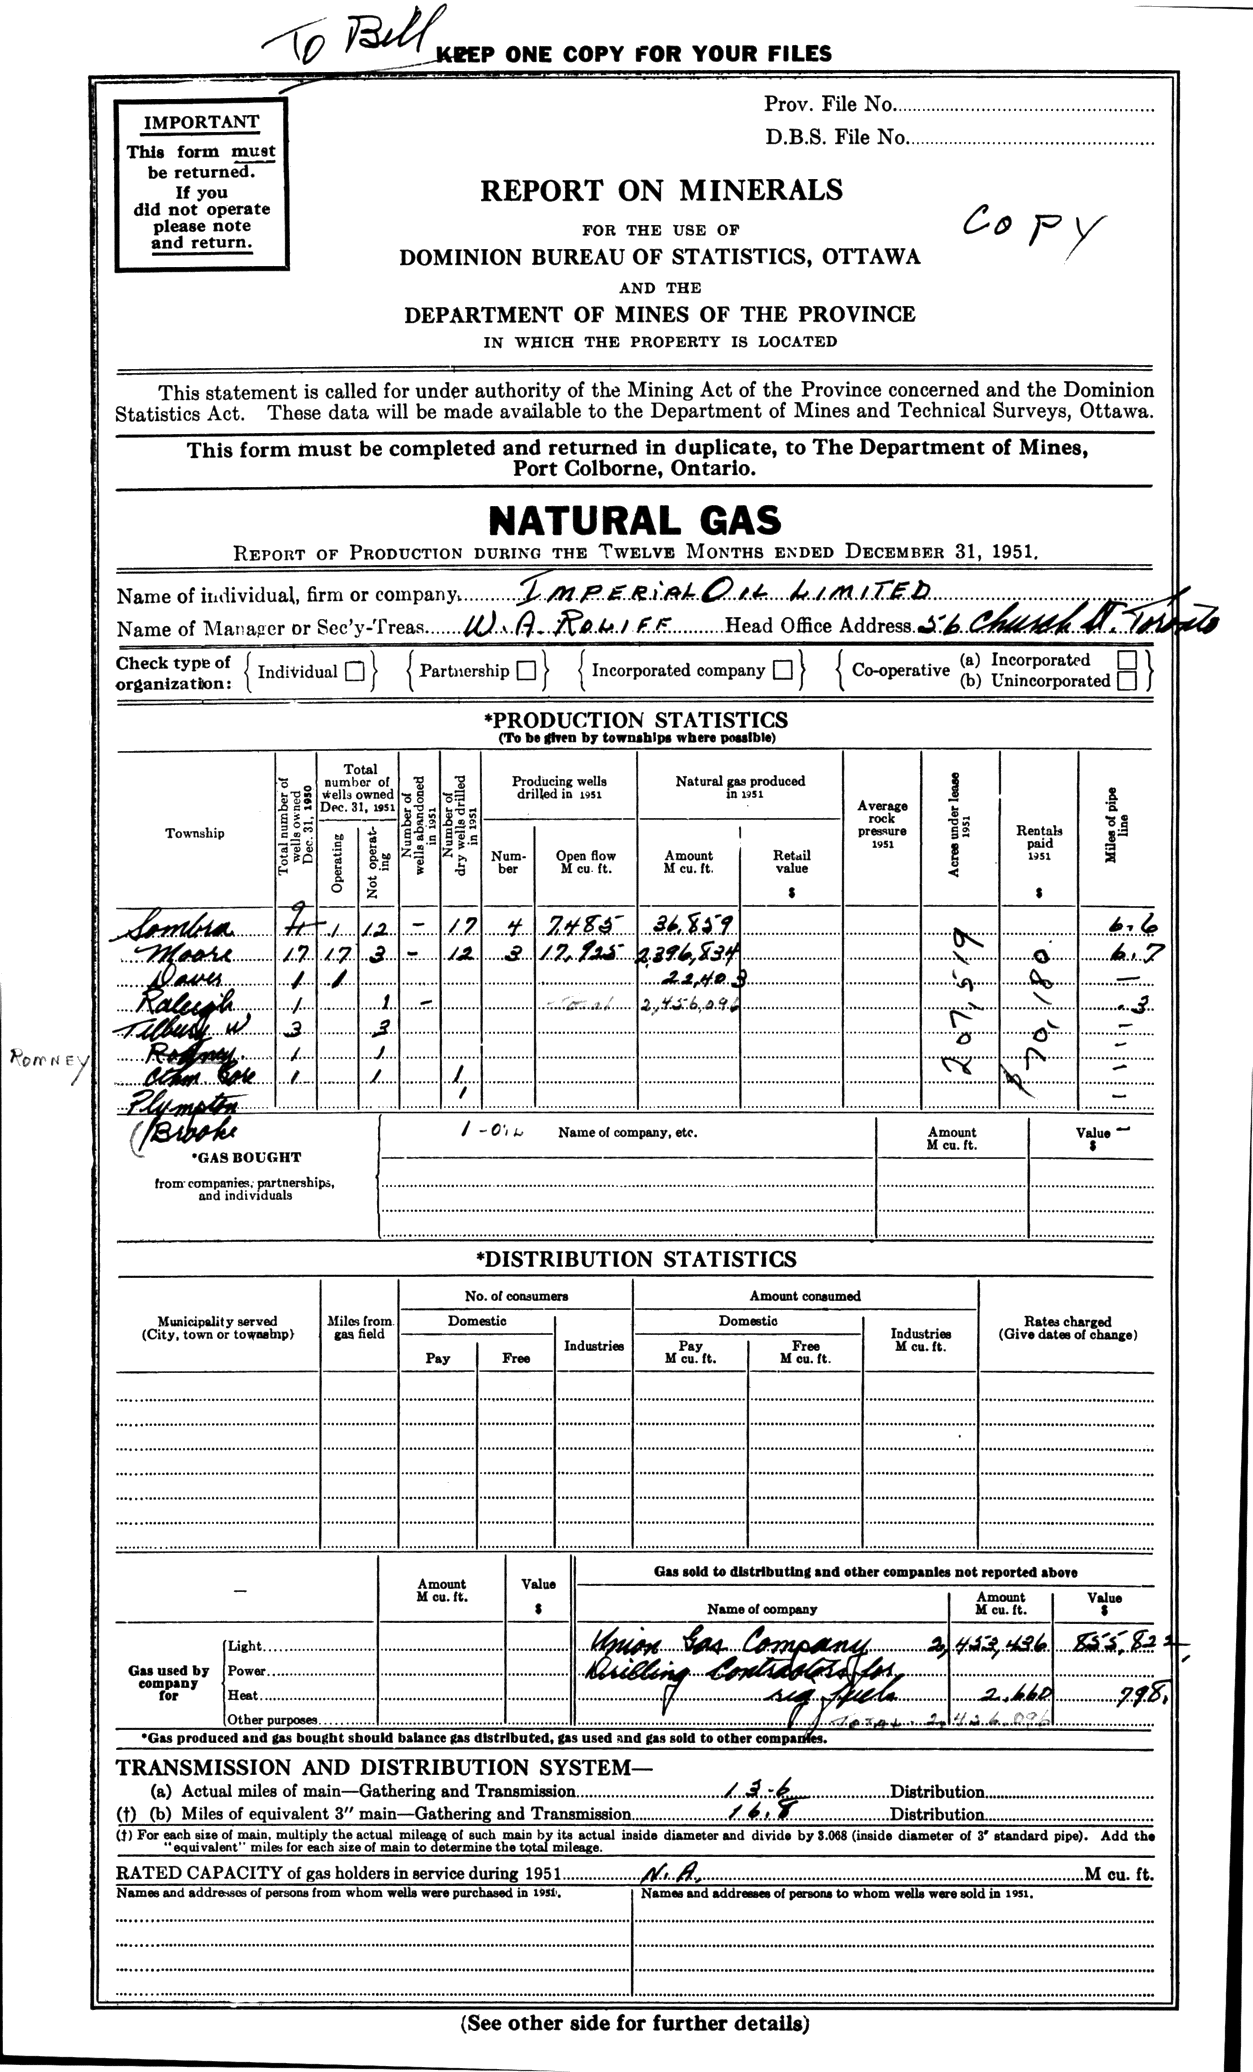 To Bell
KEEP ONE COPY FOR YOUR FILES
IMPORTANT
This form must
be returned.
If you
did not operate
please note
and return.
Prov. File No.
D.B.S. File No.
REPORT ON MINERALS
COPY
FOR THE USE OF
DOMINION BUREAU OF STATISTICS, OTTAWA
AND THE
DEPARTMENT OF MINES OF THE PROVINCE
IN WHICH THE PROPERTY IS LOCATED
This statement is called for under authority of the Mining Act of the Province concerned and the Dominion
Statistics Act. These data will be made available to the Department of Mines and Technical Surveys, Ottawa.
This form must be completed and returned in duplicate, to The Department of Mines,
Port Colborne, Ontario.
NATURAL GAS
REPORT OF PRODUCTION DURING THE TWELVE MONTHS ENDED DECEMBER 31, 1951.
Name of individual, firm or company. IMPERIAL OIL LIMITED
Name of Manager or Sec'y-Treas. W. A. ROLIFF Head Office Address 56 Church St. Toronto
Check type of organization: { Individual □ } { Partnership □ } { Incorporated company □ } { Co-operative (a) Incorporated □
(b) Unincorporated □ }
*PRODUCTION STATISTICS
(To be given by townships where possible)
Township
Total number of wells owned Dec. 31, 1950
Total number of wells owned Dec. 31, 1951
Operating
Not operating
Number of wells abandoned in 1951
Number of dry wells drilled in 1951
Producing wells drilled in 1951
Number
Open flow M cu. ft.
Natural gas produced in 1951
Amount M cu. ft.
Retail value $
Average rock pressure 1951
Acres under lease 1951
Rentals paid 1951 $
Miles of pipe line
Sombra 9 1 12 - 17 4 7,485 36,859 6.6
Moore 17 17 3 - 12 3 17,925 2,396,834 6.7
Dover 1 1 22,403 -
Raleigh 1 1 - Total 2,456,096 .3
Tilbury W 3 3 -
ROMNEY Romney 1 1 -
Chm. Gore 1 1 1 -
Plympton 1 -
207,519
$ 70,180
(Brooke 1 - OIL
*GAS BOUGHT
from companies, partnerships,
and individuals
Name of company, etc.
Amount M cu. ft.
Value $ -
*DISTRIBUTION STATISTICS
Municipality served
(City, town or township)
Miles from gas field
No. of consumers
Domestic
Pay
Free
Industries
Amount consumed
Domestic
Pay M cu. ft.
Free M cu. ft.
Industries M cu. ft.
Rates charged
(Give dates of change)
—
Amount M cu. ft.
Value $
Gas sold to distributing and other companies not reported above
Name of company
Amount M cu. ft.
Value $
Gas used by company for
Light
Power
Heat
Other purposes
Union Gas Company 2,453,436 855,822
Drilling Contractors for
rig fuels 2,660 798.
TOTAL 2,456,096
*Gas produced and gas bought should balance gas distributed, gas used and gas sold to other companies.
TRANSMISSION AND DISTRIBUTION SYSTEM—
(a) Actual miles of main—Gathering and Transmission 13.6 Distribution
(†) (b) Miles of equivalent 3" main—Gathering and Transmission 16.8 Distribution
(†) For each size of main, multiply the actual mileage of such main by its actual inside diameter and divide by 3.068 (inside diameter of 3" standard pipe). Add the
"equivalent" miles for each size of main to determine the total mileage.
RATED CAPACITY of gas holders in service during 1951 N.A. M cu. ft.
Names and addresses of persons from whom wells were purchased in 1951.
Names and addresses of persons to whom wells were sold in 1951.
(See other side for further details)